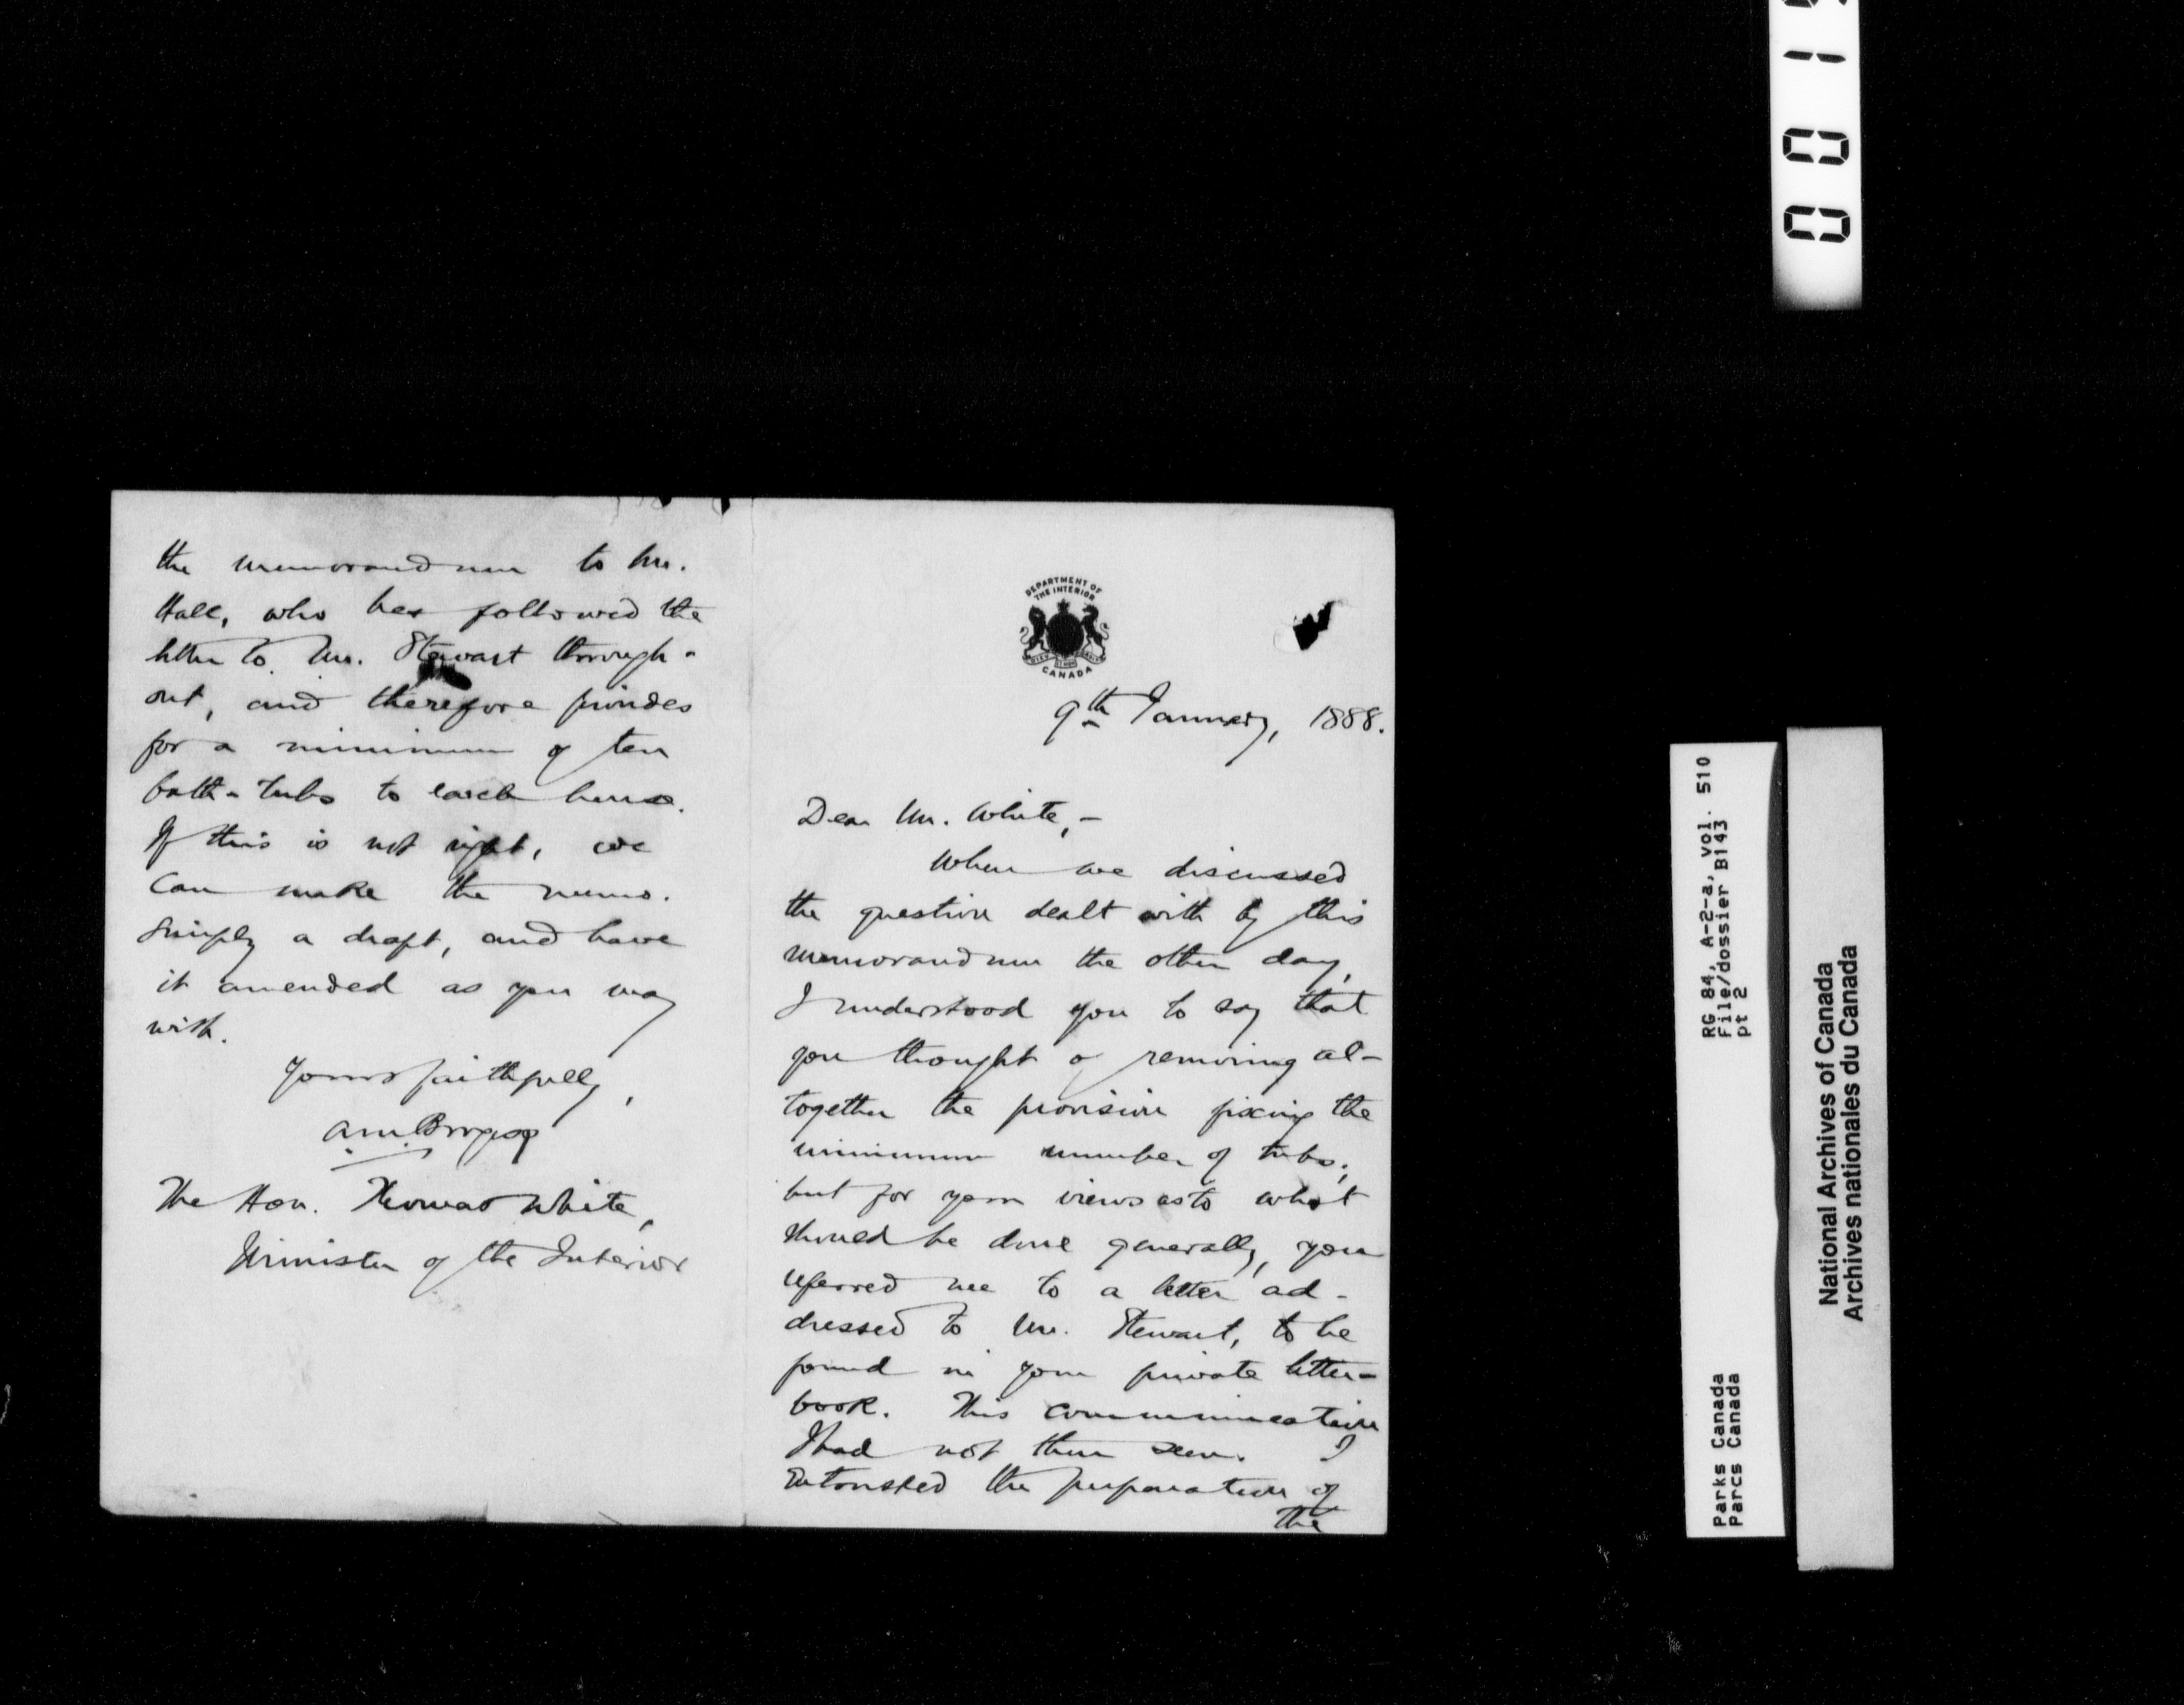 DEPARTMENT OF
THE INTERIOR
CANADA
9th January, 1888.
Dear Mr. White,-
When we discussed
the question dealt with by this
memorandum the other day,
I understood you to say that
you thought of removing al-
together the provision fixing the
minimum number of tubs;
but for your views as to what
should be done generally, you
referred me to a letter ad-
dressed to Mr. Stewart, to be
found in your private letter-
book. This communication
I had not then seen. I
entrusted the preparation of
the
the memorandum to Mr.
Hall, who has followed the
letter to Mr. Stewart through-
out, and therefore provides
for a minimum of ten
bath-tubs to each house.
If this is not right, we
can make the memo.
simply a draft, and have
it amended as you may
wish.
Yours faithfully,
A M Burgess
The Hon. Thomas White,
Minister of the Interior
0 0 1
RG 84, A-2-a, vol. 510
File/dossier B143
pt 2
Parks Canada
Parcs Canada
National Archives of Canada
Archives nationales du Canada